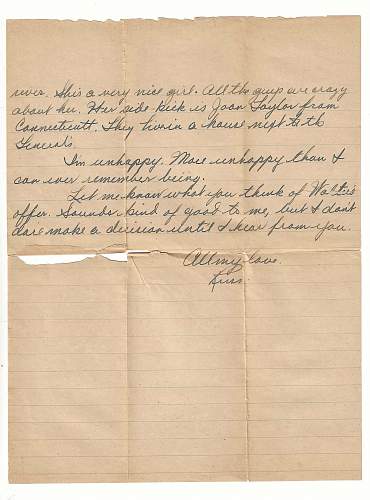 river. She is a very nice girl. All the guys are crazy
about her. Her side kick is Joan Taylor from
Connecticutt. They live in a house next to the
General's.
I'm unhappy. More unhappy than I
can ever remember being.
Let me know what you think of Walter's
offer. Sounds kind of good to me, but I don't
dare make a decision until I hear from you.
All my love.